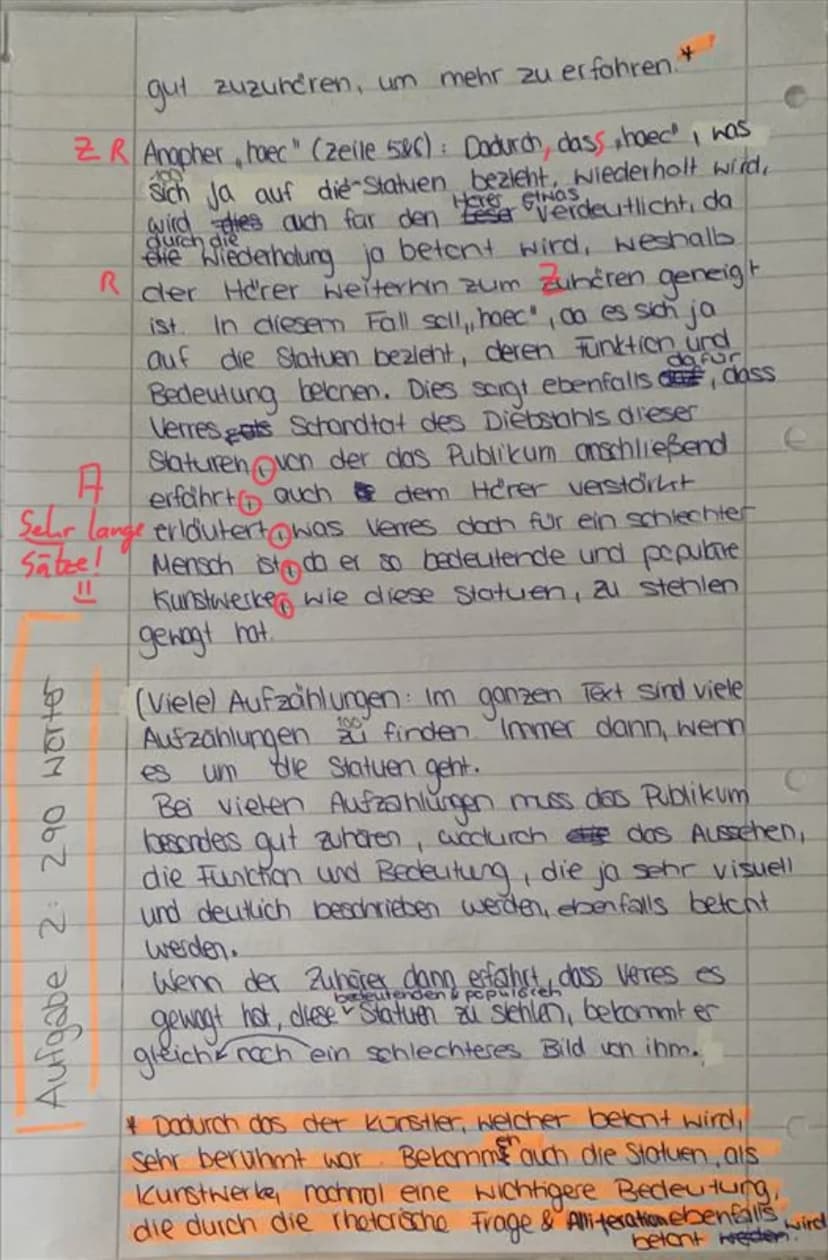 gut zuzuhören, um mehr zu erfahren.*
Z R Anapher „haec" (Zeile 5&6): Dadurch, dass „haec", was
sich ja auf die 100 Statuen bezieht, wiederholt wird,
wird dies auch für den Leser Hörer etwas verdeutlicht, da
die durch die Wiederholung ja betont wird, weshalb
R der Hörer weiterhin zum Zuhören geneigt
ist. In diesem Fall soll „haec", da es sich ja
auf die Statuen bezieht, deren Funktion und
Bedeutung betonen. Dies sorgt ebenfalls dafür, dass
Verres Schandtat des Diebstahls dieser
Staturen, von der das Publikum anschließend
A erfährt, auch dem Hörer verstärkt
Sehr lange erläutert, was Verres doch für ein schlechter
Sätze! Mensch ist, da er so bedeutende und populäre
Kunstwerke, wie diese Statuen, zu stehlen
gewagt hat.
Aufgabe 2: 290 Wörter
(Viele) Aufzählungen: Im ganzen Text sind viele
Aufzählungen zu 100 finden. Immer dann, wenn
es um die Statuen geht.
Bei vielen Aufzählungen muss das Publikum
besonders gut zuhören, wodurch das Aussehen,
die Funktion und Bedeutung, die ja sehr visuell
und deutlich beschrieben werden, ebenfalls betont
werden.
Wenn der Zuhörer dann erfährt, dass Verres es
gewagt hat, diese bedeutenden & populären Statuen zu stehlen, bekommt er
gleich noch ein schlechteres Bild von ihm.
* Dadurch das der Künstler, welcher betont wird,
sehr berühmt war. Bekommen auch die Statuen, als
Kunstwerke, nochmal eine wichtigere Bedeutung,
die durch die rhetorische Frage & Alliteration ebenfalls
betont werden. wird